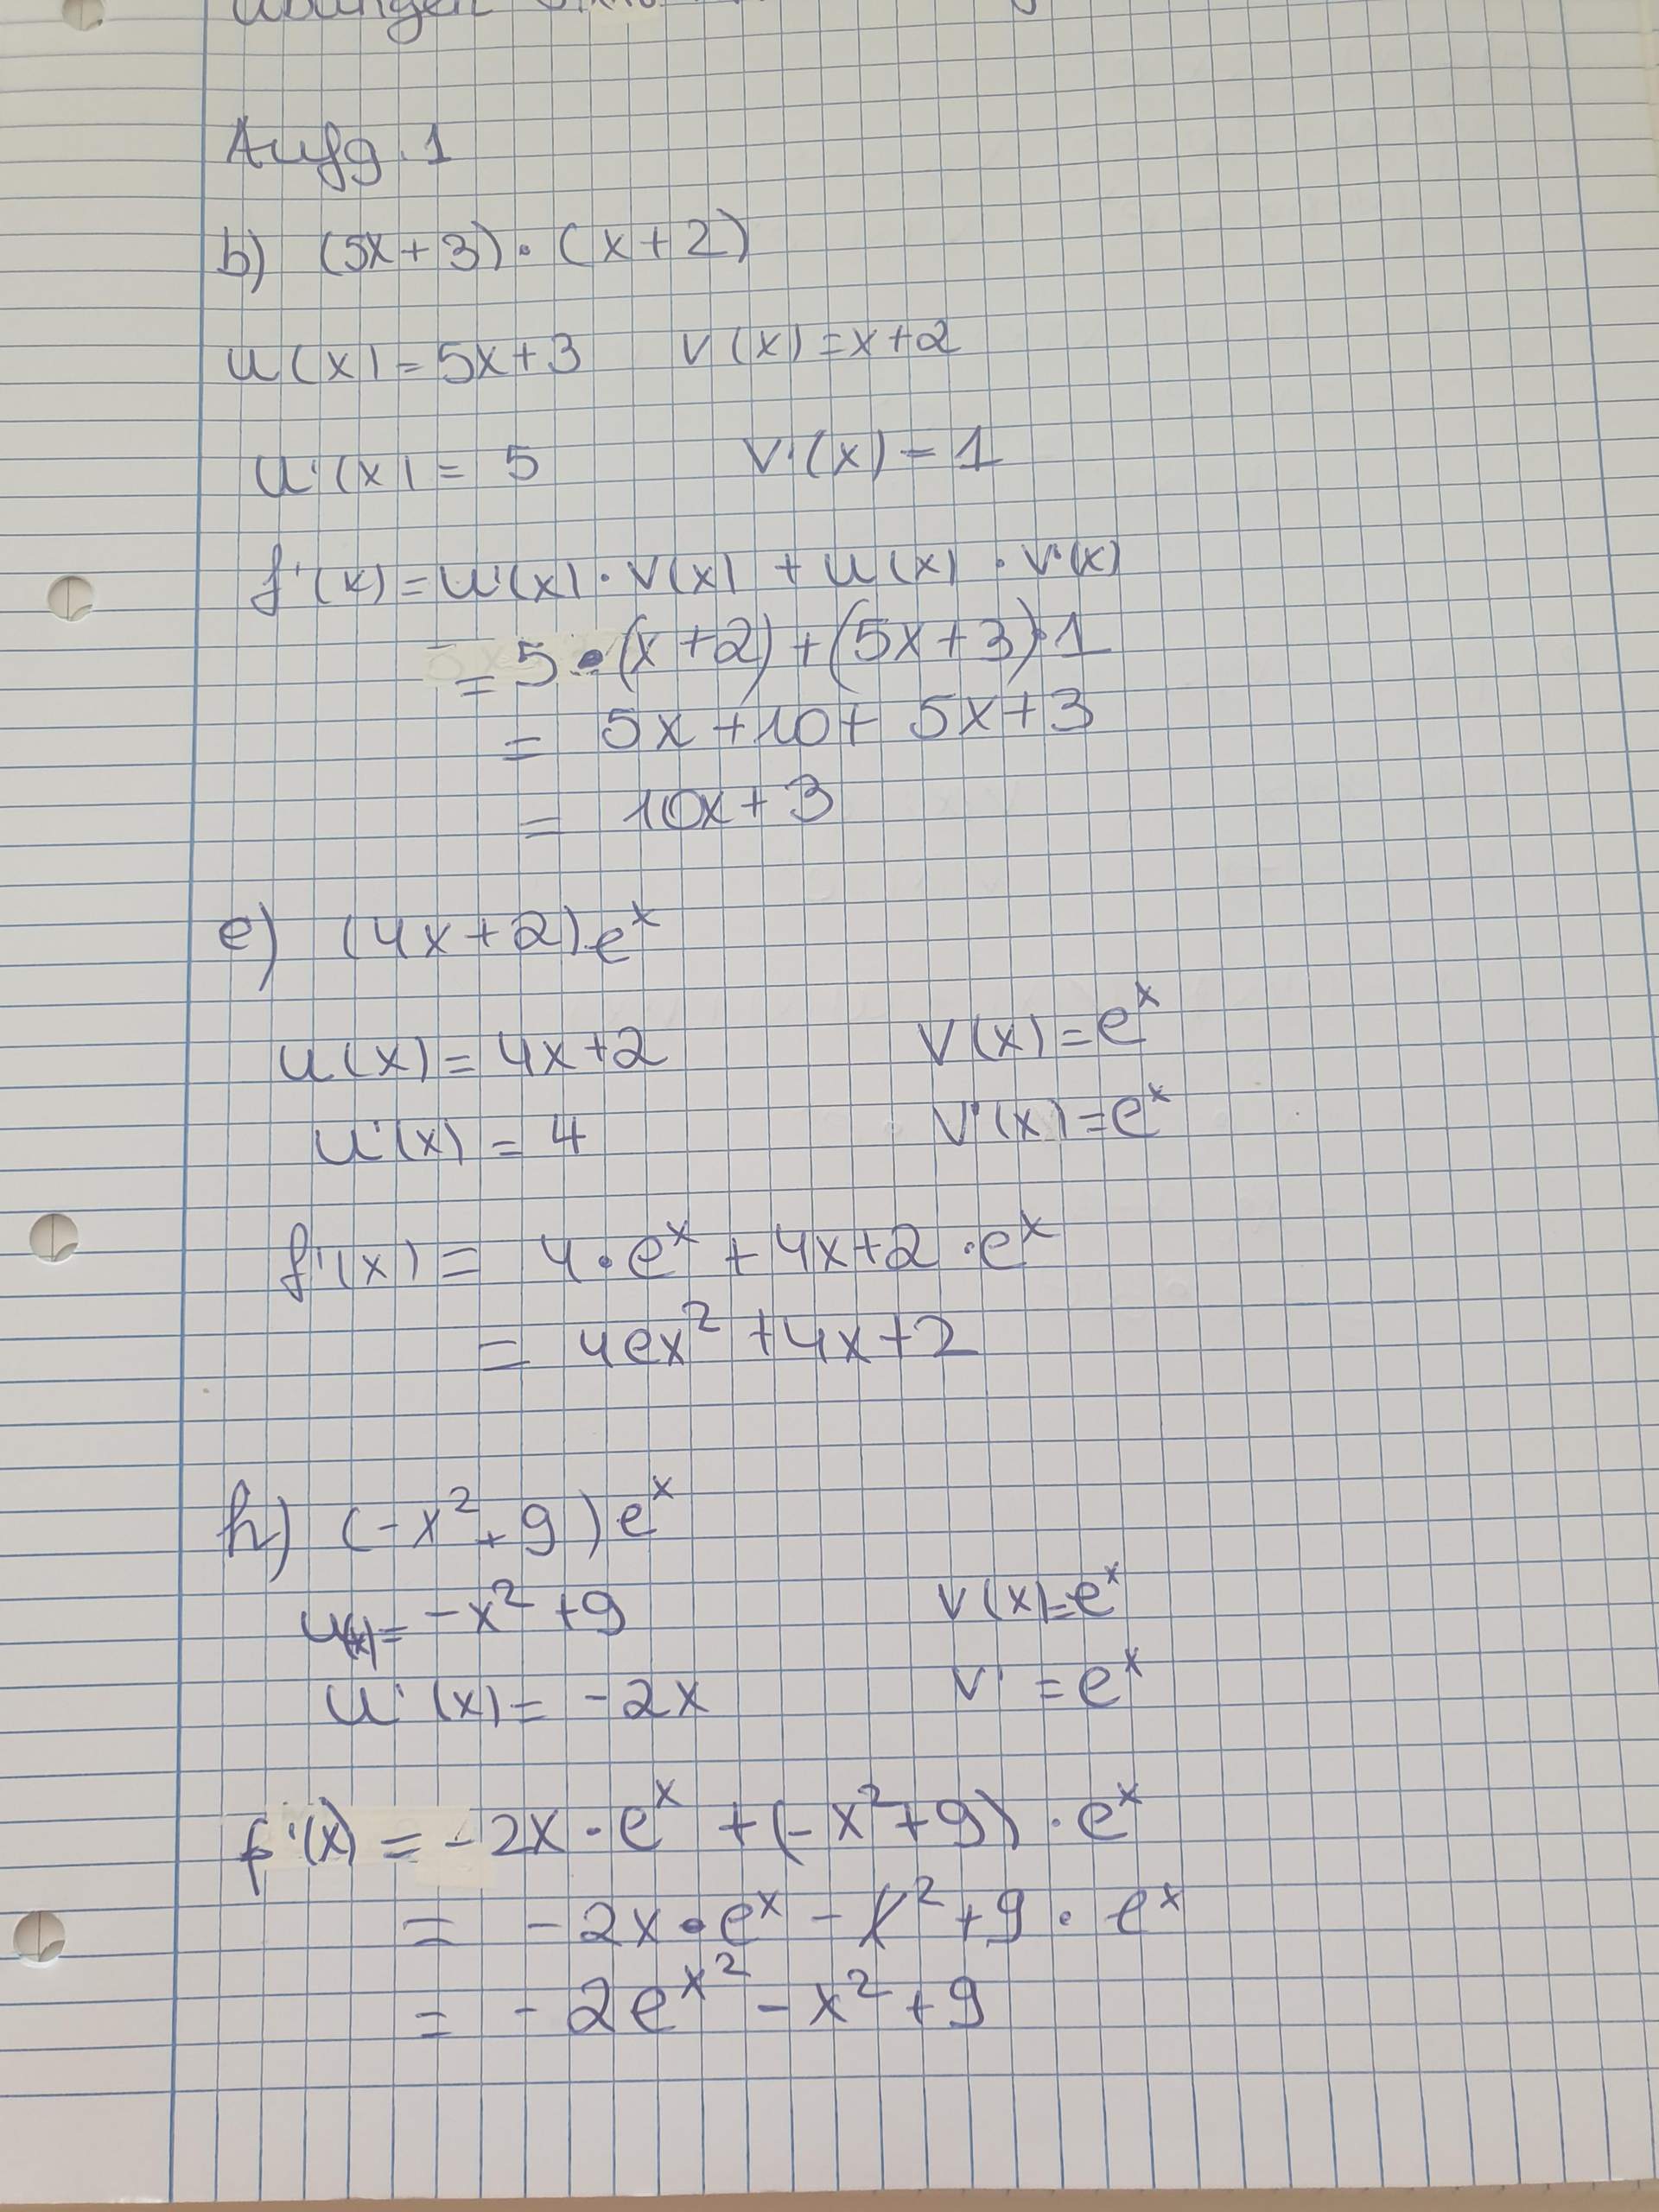 Übungen
Aufg. 1
b) (5x+3)·(x+2)
u(x)=5x+3 v(x)=x+2
u'(x)= 5 v'(x)=1
f'(x)=u'(x)·v(x)+u(x)·v'(x)
=5·(x+2)+(5x+3)·1
= 5x+10+5x+3
= 10x+3
e) (4x+2)eˣ
u(x)=4x+2 v(x)=eˣ
u'(x)=4 v'(x)=eˣ
f'(x)= 4·eˣ+4x+2·eˣ
= 4ex²+4x+2
h) (-x²+9)eˣ
u(x)=-x²+9 v(x)=eˣ
u'(x)=-2x v'=eˣ
f'(x)=-2x·eˣ+(-x²+9)·eˣ
= -2x·eˣ-x²+9·eˣ
= -2eˣ²-x²+9